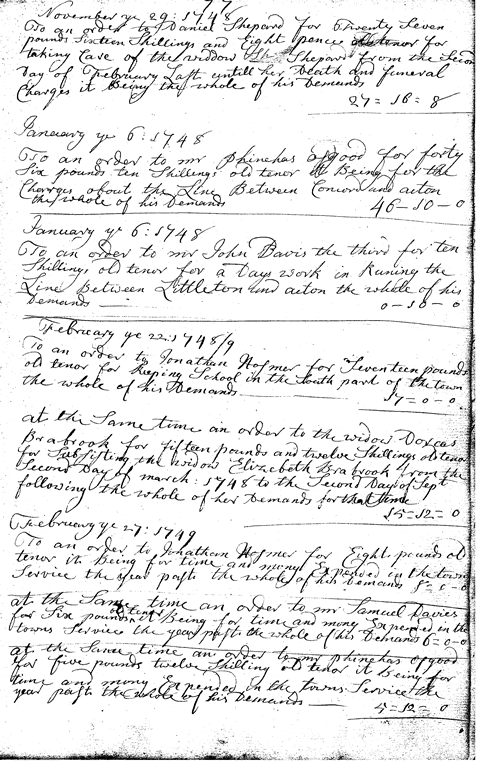 77
November ye 29: 1748
To an order to Daniel Shepard for Twenty Seven
pounds Sixteen Shillings and Eight pence old tenor for
taking Care of the widdow Shepard from the Second
Day of February Last untill her Death and funeral
Charges it Being the whole of his Demands
27=16=8
January ye 6: 1748
To an order to mr phinehas osgood for forty
Six pounds ten Shillings old tenor it Being for the
Charges about the Line Between Concord and acton
the whole of his Demands 46-10-0
January ye 6: 1748
To an order to mr John Davis the third for ten
Shillings old tenor for a Days work in Runing the
Line Between Littleton and acton the whole of his
Demands 0-10-0
February ye 22: 1748/9
To an order to Jonathan Hosmer for Seventeen pounds
old tenor for keeping School in the South part of the town
the whole of his Demands
17=0-0
at the Same time an order to the widow Dorcas
Brabrook for fifteen pounds and twelve Shillings old tenor
for Subsisting the widow Elizebeth Brabrook from the
Second Day of march: 1748 to the Second Day of Sept
following the whole of her Demands for that time
15=12=0
February ye 27: 1749
To an order to Jonathan Hosmer for Eight pounds old
tenor it Being for time and mony Expended in the towns
Service the year past the whole of his Demands 8=0-0
at the Same time an order to mr Samuel Davies
for Six pounds old tenor it Being for time and mony Expended in the
towns Service the year past the whole of his Demands 6=0-0
at the Same time an order to mr phinehas osgood
for five pounds twelve Shilling old tenor it Being for
time and mony Expended in the towns Service the
year past the whole of his Demands
5=12=0